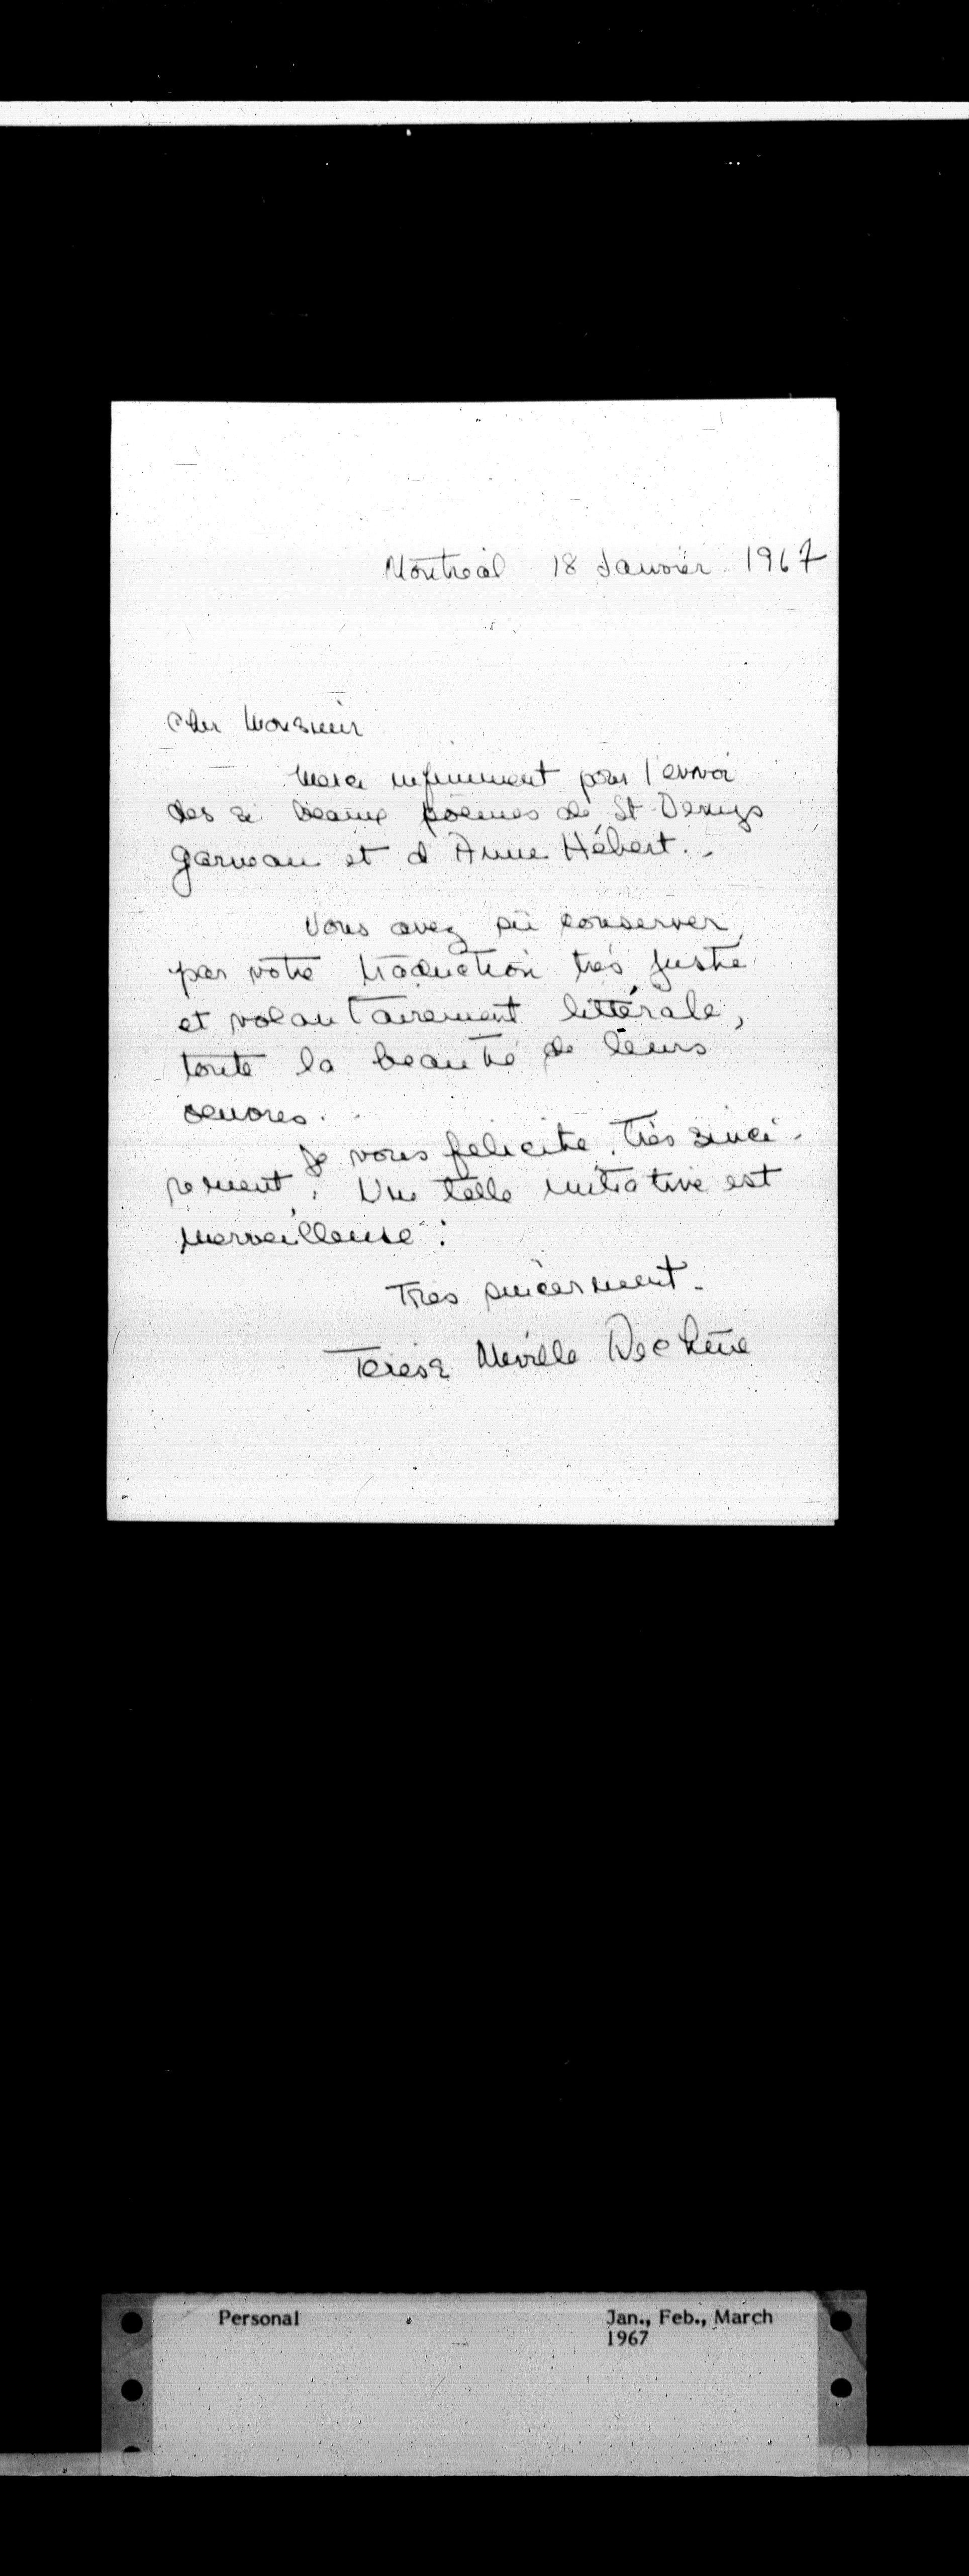 Montreal 18 Janvier 1967
Cher Monsieur
Merci infiniment pour l'envoi
des si beaux poèmes de St-Denys
Garneau et d'Anne Hébert..
Vous avez su conserver,
par votre traduction très juste
et volontairement littérale,
toute la beauté de leurs
oeuvres.
Je vous félicite très sincè-
rement. Une telle initiative est
merveilleuse!
Très sincèrement.
Dechêne
Personal
Jan., Feb., March
1967